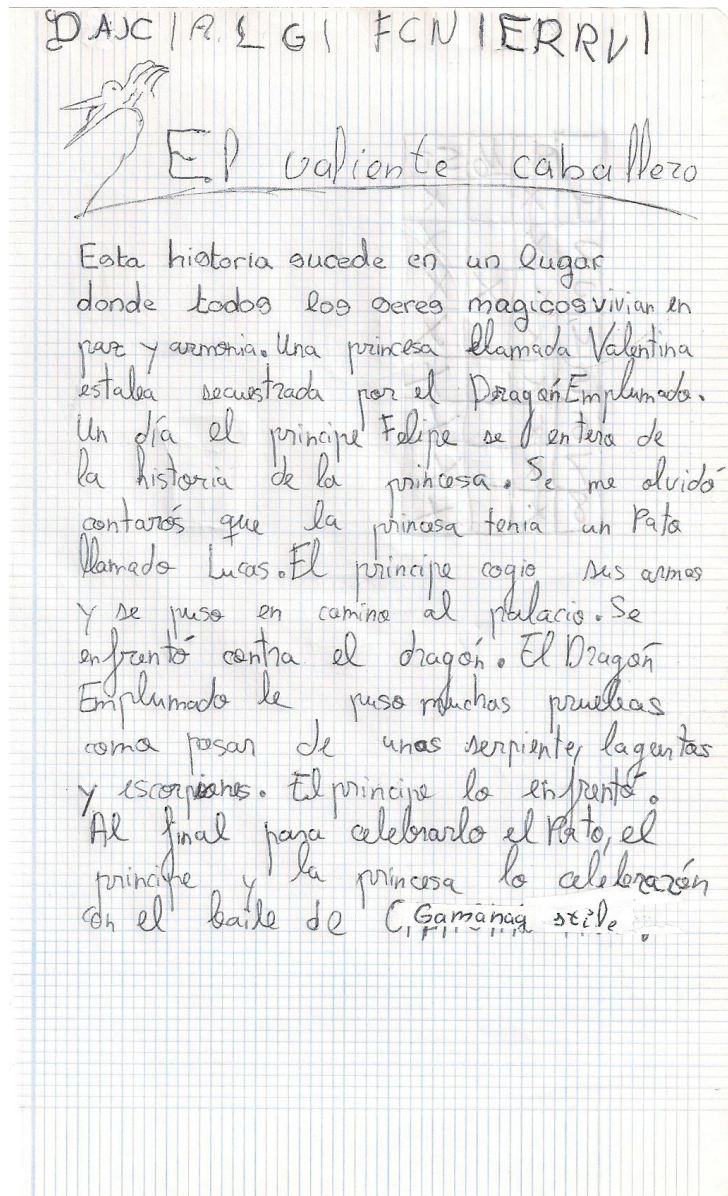 DAJCIALGI FCNIERRVI
El valiente caballero
Esta historia sucede en un lugar
donde todos los seres magicos vivian en
paz y armonia. Una princesa llamada Valentina
estaba secuestrada por el Dragón Emplumado.
Un día el principe Felipe se entera de
la historia de la princesa. Se me olvidó
contarós que la princesa tenia un Pato
llamado Lucas. El principe cogio sus armas
y se puso en camino al palacio. Se
enfrentó contra el dragón. El Dragón
Emplumado le puso muchas pruebas
como pasar de unas serpiente, lagartas
y escorpiones. El principe lo enfrentó.
Al final para celebrarlo el Pato, el
principe y la princesa lo celebrarón
con el baile de Gamanag stile.